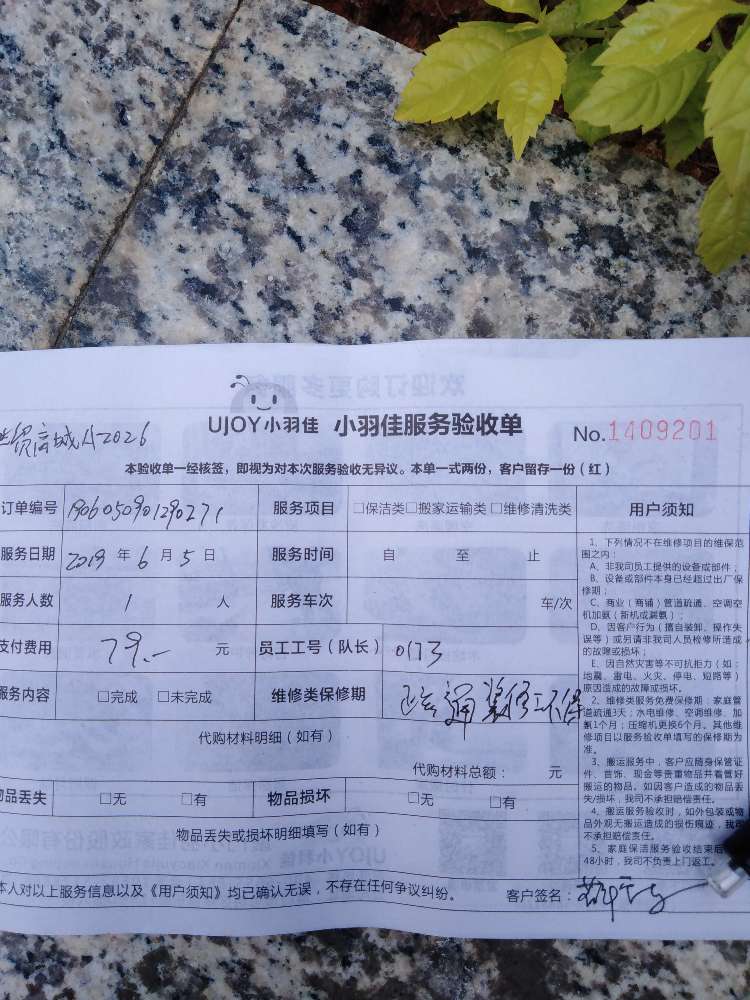 UJOY小羽佳 小羽佳服务验收单 No.1409201
贸商城A-2026
本验收单一经核签，即视为对本次服务验收无异议。本单一式两份，客户留存一份（红）
订单编号 1906050901290271 服务项目 □保洁类□搬家运输类□维修清洗类
服务日期 2019 年 6 月 5 日 服务时间 自 至 止
服务人数 1 人 服务车次 车/次
支付费用 79.- 元 员工工号（队长） 0173
服务内容 □完成 □未完成 维修类保修期 疏通 装修不保
代购材料明细（如有）
代购材料总额： 元
物品丢失 □无 □有 物品损坏 □无 □有
物品丢失或损坏明细填写（如有）
本人对以上服务信息以及《用户须知》均已确认无误，不存在任何争议纠纷。 客户签名：
用户须知
1、下列情况不在维修项目的维保范
围之内：
A、非我司员工提供的设备或部件；
B、设备或部件本身已经超过出厂保
修期；
C、商业（商铺）管道疏通、空调空
机加氨（新机或漏氨）；
D、因客户行为（擅自装卸、操作失
误等）或另请非我司人员检修所造成
的故障或损坏；
E、因自然灾害等不可抗拒力（如：
地震、雷电、火灾、停电、短路等）
原因造成的故障或损坏。
2、维修类服务免费保修期：家庭管
道疏通3天；水电维修、空调维修、加
氨1个月；压缩机更换6个月。其他维
修项目以服务验收单填写的保修期为
准。
3、搬运服务中，客户应随身保管证
件、首饰、现金等贵重物品并看管好
搬运的物品。如因客户造成的物品丢
失/损坏，我司不承担赔偿责任。
4、搬运服务验收时，如外包装或物
品外观无搬运造成的损伤痕迹，我司
不承担赔偿责任。
5、家庭保洁服务验收结束后
48小时，我司不负责上门返工。